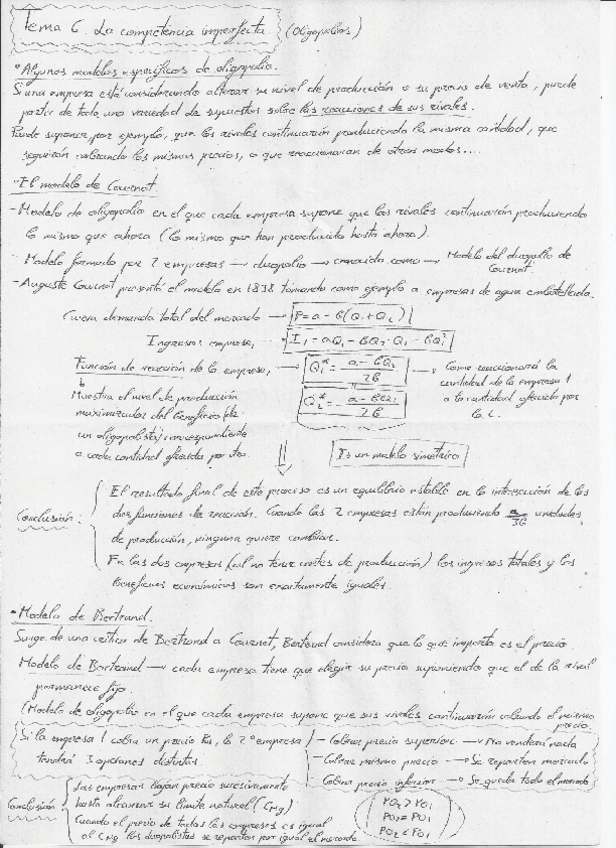 Tema 6. La competencia imperfecta (Oligopolios)
• Algunos modelos específicos de oligopolio.
Si una empresa está considerando alterar su nivel de producción o su precio de venta, puede
partir de toda una variedad de supuestos sobre las reacciones de sus rivales.
Puede suponer, por ejemplo, que los rivales continuarán produciendo la misma cantidad, que
seguirán cobrando los mismos precios, o que reaccionarán de otros modos....
• El modelo de Cournot.
- Modelo de oligopolio en el que cada empresa supone que los rivales continuarán produciendo
lo mismo que ahora (lo mismo que han producido hasta ahora).
Modelo formado por 2 empresas → duopolio → conocido como → Modelo del duopolio de
Cournot.
- Auguste Cournot presentó el modelo en 1838 tomando como ejemplo a empresas de agua embotellada.
Curva demanda total del mercado → P=a-b(Q1+Q2)
Ingresos empresa1 I1=aQ1-bQ2·Q1-bQ1²
Función de reacción de la empresa1 → Q1*= a-bQ2 / 2b → Como reaccionará la
cantidad de la empresa 1
a la cantidad ofrecida por
la 2.
Q2*= a-bQ1 / 2b
Muestra el nivel de producción
maximizador del beneficio de
un oligopolista correspondiente
a cada cantidad ofrecida por otro.
Es un modelo simétrico
Conclusión:
El resultado final de este proceso es un equilibrio estable en la intersección de las
dos funciones de reacción. Cuando las 2 empresas están produciendo a/3b unidades
de producción, ninguna quiere cambiar.
En las dos empresas (al no tener costes de producción) los ingresos totales y los
beneficios económicos son exactamente iguales.
• Modelo de Bertrand.
Surge de una crítica de Bertrand a Cournot, Bertrand considera que lo que importa es el precio.
Modelo de Bertrand → cada empresa tiene que elegir su precio suponiendo que el de la rival
permanece fijo
(Modelo de oligopolio en el que cada empresa supone que sus rivales continuarán cobrando el mismo
precio)
Si la empresa 1 cobra un precio P01, la 2ª empresa
tendrá 3 opciones distintas.
- Cobrar precio superior → No venderá nada
- Cobrar mismo precio → Se reparten mercado
- Cobrar precio inferior → Se queda todo el mercado
Conclusión
Las empresas bajan precio sucesivamente
hasta alcanzar su límite natural (CMg)
Cuando el precio de todas las empresas es igual
al CMg los duopolistas se repartan por igual el mercado.
P02>P01
P02=P01
P02<P01